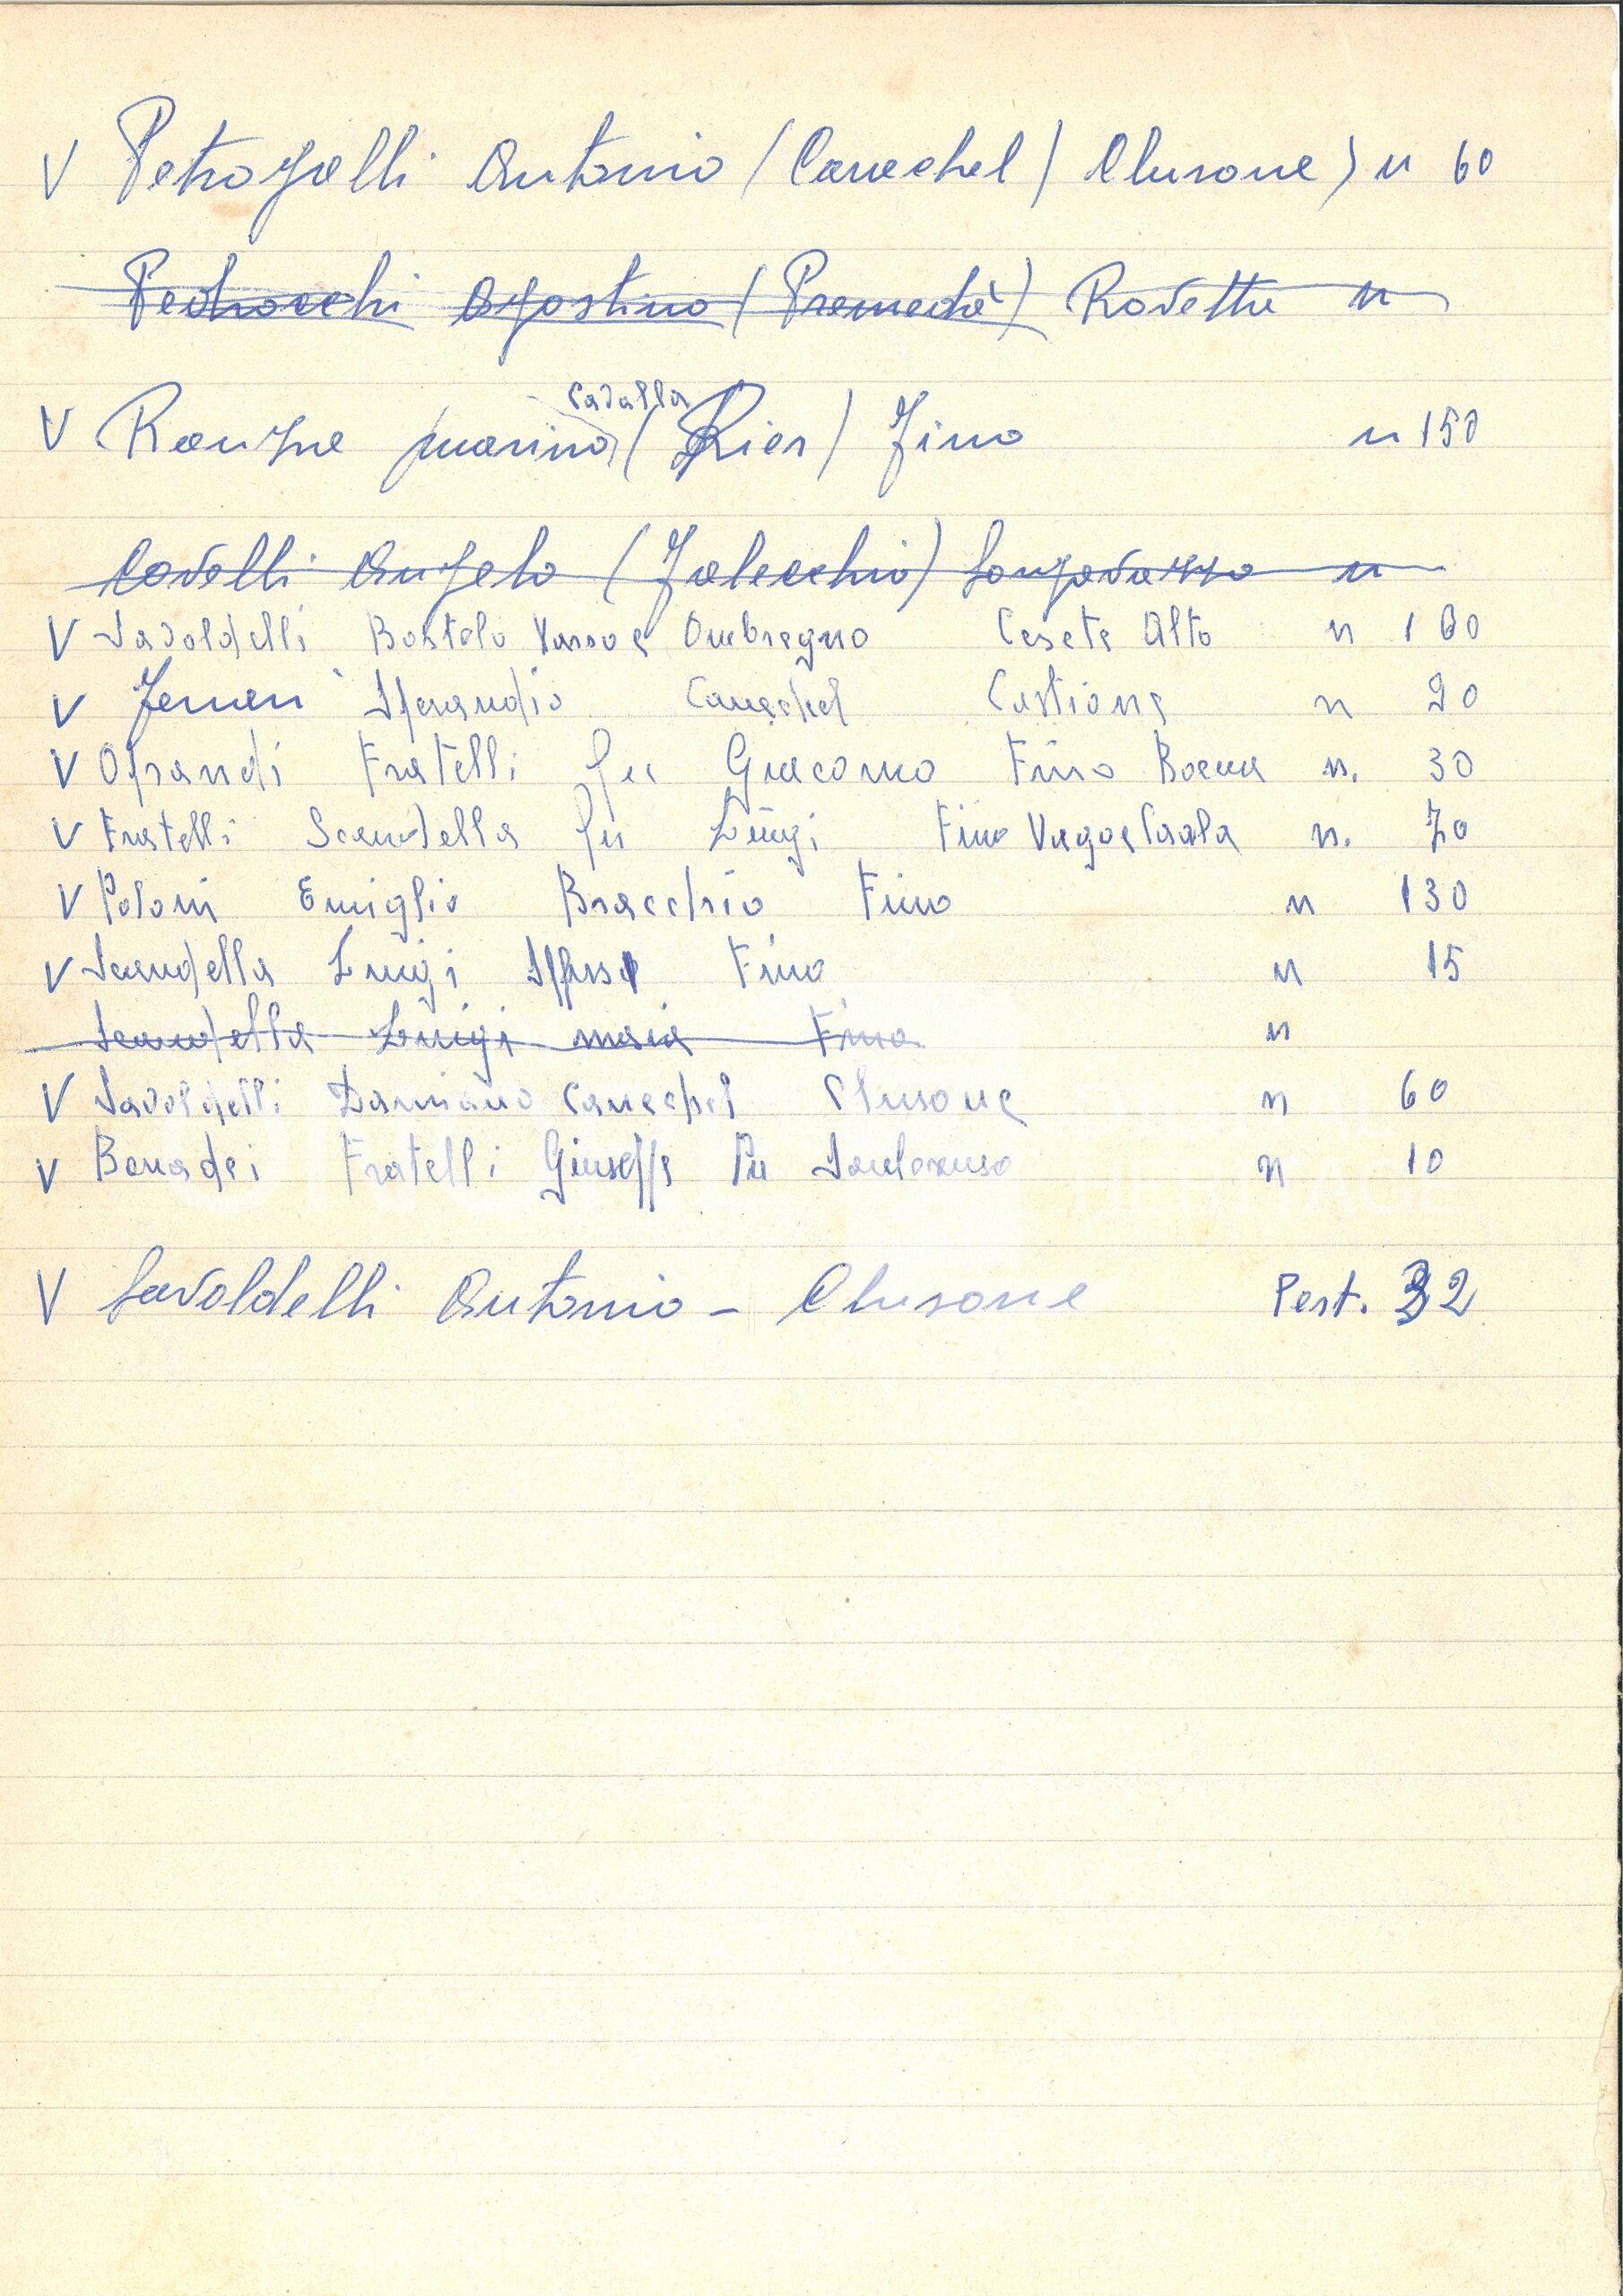 V Petrogalli Antonio (Carechel) Clusone) n 60
Pedrocchi Agostino (Premedè) Rovetta n
Cavalla
V Ranzne marino (Rier) Fino n 150
Covelli Angelo (Falecchio) Songavazzo n
V Savoldelli Bortolo Ombregno Cesete Alto n 100
V Ferreri Sperandio Carechel Castione n 20
V Oprandi Fratelli fu Giacomo Fino n. 30
V Fratelli Scandella fu Luigi Fino n. 70
V Poloni Emiglio Bracchio Fino n 130
V Scandella Luigi Fino n 15
Scandella Luigi maia Fino n
V Savoldelli Damiano Carechel Clusone n 60
V Benadei Fratelli Giuseppe Fu n 10
V Savoldelli Antonio - Clusone Pert. 32